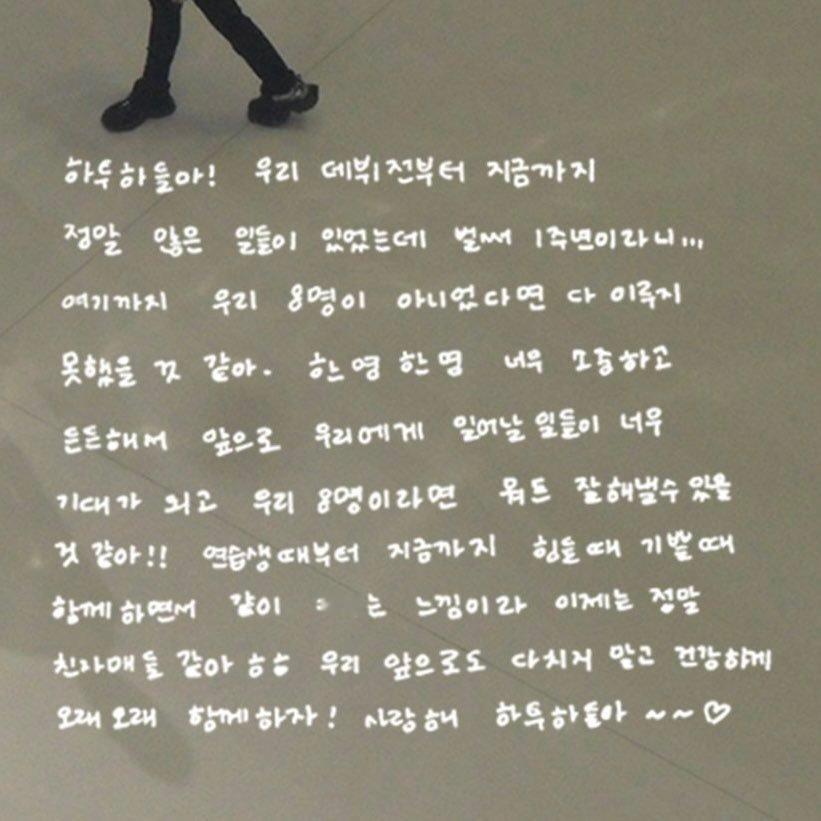 하투하들아! 우리 데뷔전부터 지금까지
정말 많은 일들이 있었는데 벌써 1주년이라니...
여기까지 우리 8명이 아니었다면 다 이루지
못했을 것 같아. 한명 한명 너무 소중하고
든든해서 앞으로 우리에게 일어날 일들이 너무
기대가 되고 우리 8명이라면 뭐든 잘해낼수있을
것 같아!! 연습생때부터 지금까지 힘들때 기쁠때
함께하면서 같이 는 느낌이라 이제는 정말
친자매들 같아 ㅎㅎ 우리 앞으로도 다치지 말고 건강하게
오래오래 함께하자! 사랑해 하투하들아 ~~♡